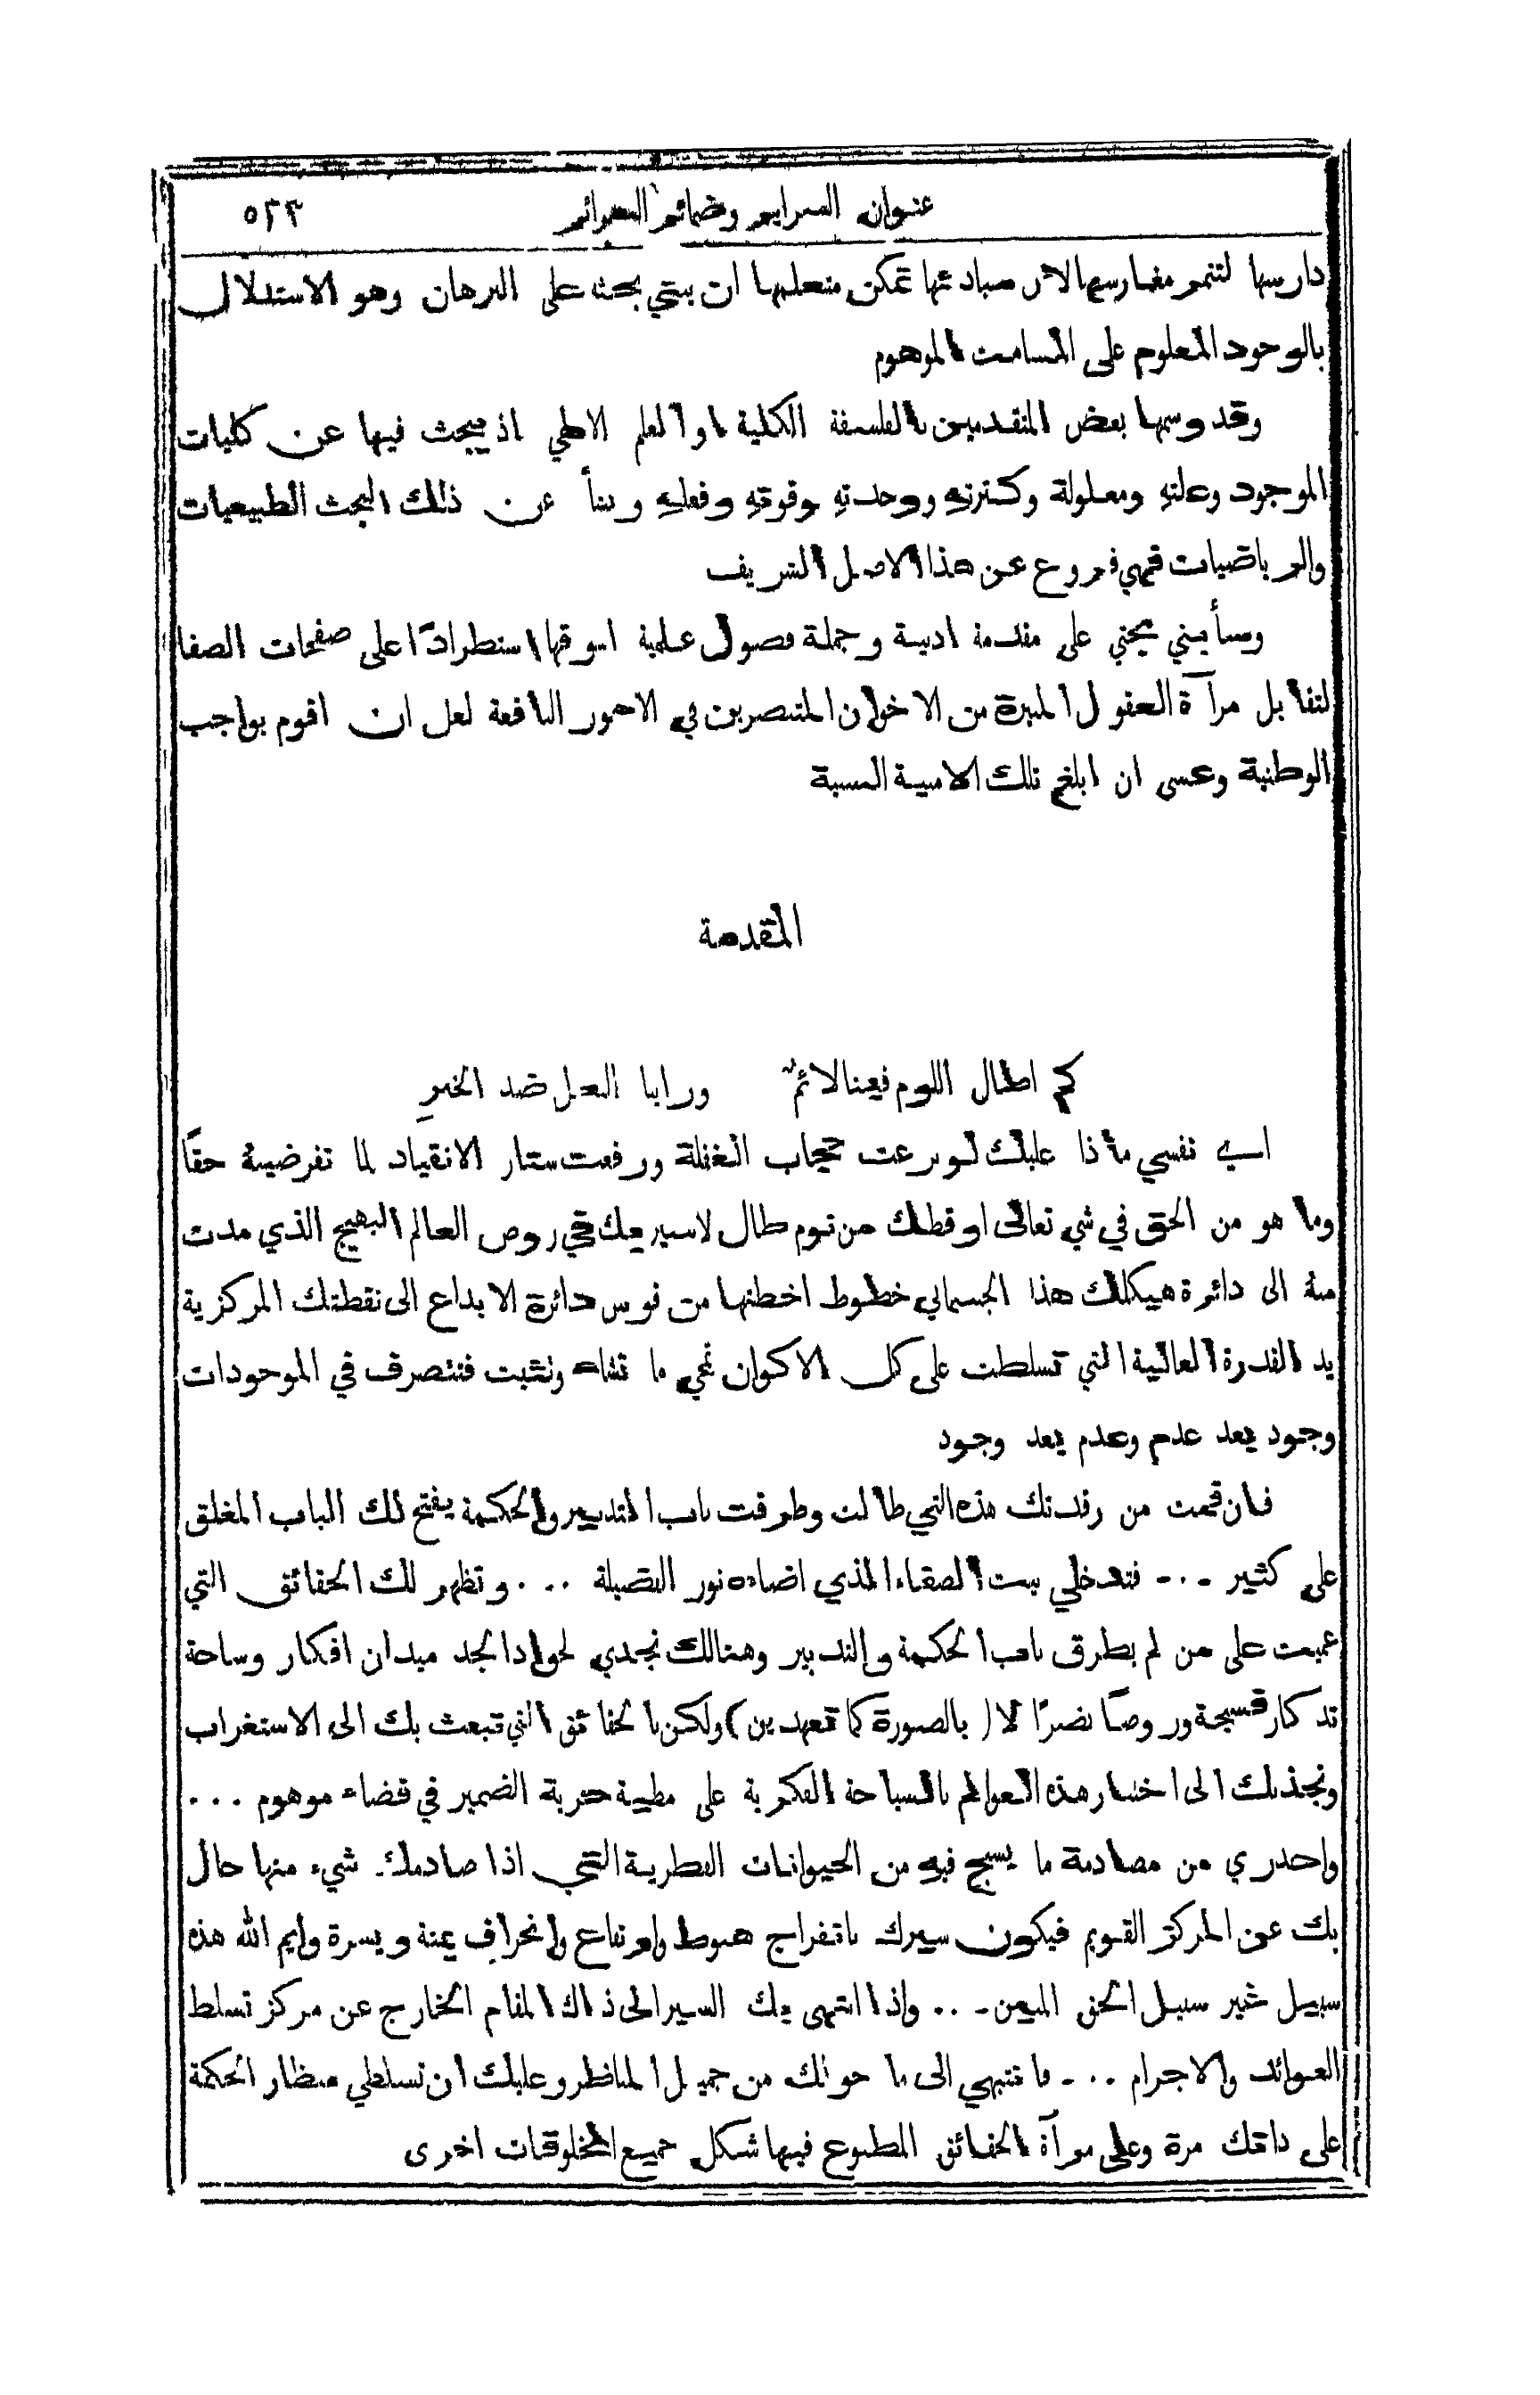 عنوان السرایر وضمائر السرائر ٥٢٣
دارسها لتثمر مغارسها لان مبادئها تمكن متعلمها ان يبني بحثه على البرهان وهو الاستدلال
بالوجود المعلوم على المسامت الموهوم
وقد وسمها بعض المتقدمين بالفلسفة الكلية او العلم الالهي اذ يبحث فيها عن كليات
الموجود وعلتهِ ومعلولة وكثرتهِ ووحدتهِ وقوتهِ وفعلهِ وينشأ عن ذلك البحث الطبيعيات
والرياضيات فهي فروع عن هذا الاصل الشريف
وسأبني بحثي على مقدمة ادبية وجملة فصول علمية اسوقها استطرادًا على صفحات الصفا
لتقابل مرآة العقول المنيرة من الاخوان المتبصرين في الامور النافعة لعل ان اقوم بواجب
الوطنية وعسى ان ابلغ تلك الامنية السنية
المقدمة
كم اطال اللوم فينا لائم ورايا العذل ضد الخبرِ
اي نفسي ماذا عليك لو نزعت حجاب الغفلة ورفعت ستار الانقياد لما تفرضينهُ حقًا
وما هو من الحق في شيء تعالى اوقظك من نوم طال لاسير بك في روض العالم البهيج الذي مدت
منهُ الى دائرة هيكلك هذا الجسماني خطوط اخطتها من قوس دائرة الابداع الى نقطتك المركزية
يد القدرة العالية التي تسلطت على كل الاكوان تمحي ما تشاء وتثبت فتتصرف في الموجودات
وجود بعد عدم وعدم بعد وجود
فان قمت من رقدتك هذه التي طالت وطرقت باب التدبير والحكمة يفتح لك الباب المغلق
على كثير ... فتدخلي بيت الصفاء الذي اضاءه نور الفضيلة ... وتظهر لك الحقائق التي
عميت على من لم يطرق باب الحكمة والتدبير وهنالك تجدي لجواد الجد ميدان افكار وساحة
تذكار فسيحة وروضًا نضرًا لا (بالصورة كما تعهدين) ولكن بالحقائق التي تبعث بك الى الاستغراب
وتجذبك الى اختبار هذه العوالم بالسياحة الفكرية على مطية حرية الضمير في فضاء موهوم ...
واحذري من مصادمة ما يسبح فيه من الحيوانات الفطرية التي اذا صادمك شيء منها حال
بك عن المركز القويم فيكون سيرك بانفراج هبوط وارتفاع وانحراف يمنة ويسرة وايم الله هذه
سبيل غير سبيل الحق المبين ... واذا انتهى بك السير الى ذاك المقام الخارج عن مركز تسلط
العوائد والاجرام ... فانتبهي الى ما حولك من جميل المناظر وعليك ان تسلطي منظار الحكمة
على ذاتك مرة وعلى مرآة الحقائق المطبوع فيها شكل جميع المخلوقات اخرى